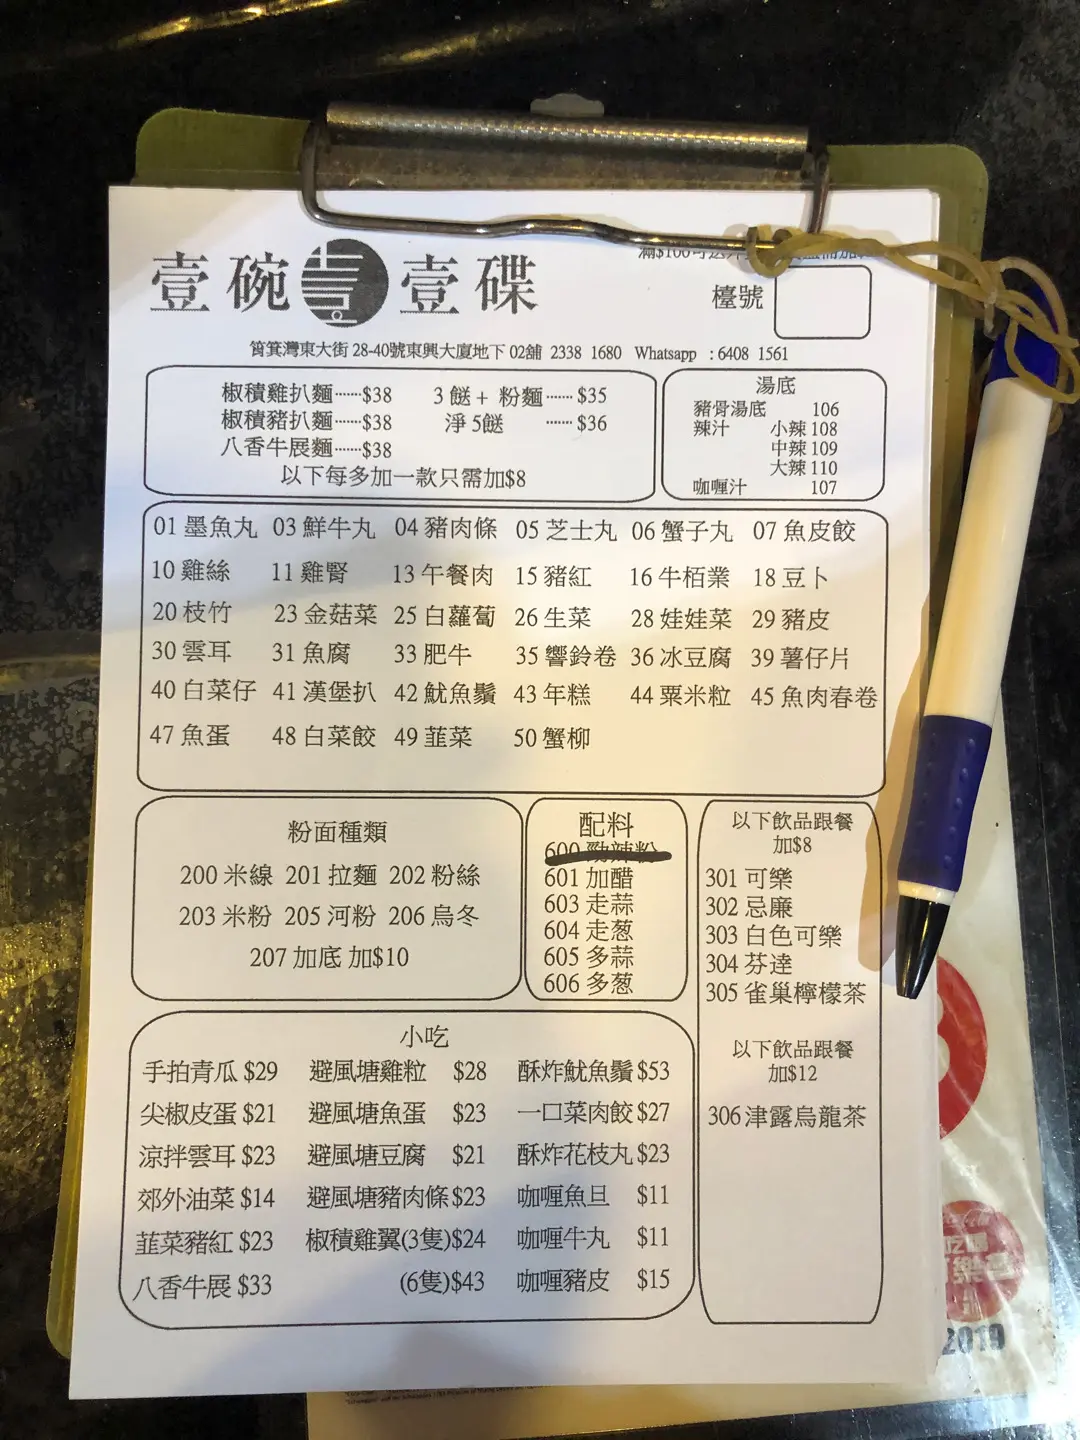 壹碗 壹碟
檯號
筲箕灣東大街 28-40號東興大廈地下 02舖 2338 1680 Whatsapp : 6408 1561
椒積雞扒麵……$38 3餸 + 粉麵……$35
椒積豬扒麵……$38 淨 5餸 ……$36
八香牛展麵……$38
以下每多加一款只需加$8
湯底
豬骨湯底 106
辣汁 小辣 108
中辣 109
大辣 110
咖喱汁 107
01 墨魚丸 03 鮮牛丸 04 豬肉條 05 芝士丸 06 蟹子丸 07 魚皮餃
10 雞絲 11 雞腎 13 午餐肉 15 豬紅 16 牛栢業 18 豆卜
20 枝竹 23 金菇菜 25 白蘿蔔 26 生菜 28 娃娃菜 29 豬皮
30 雲耳 31 魚腐 33 肥牛 35 響鈴卷 36 冰豆腐 39 薯仔片
40 白菜仔 41 漢堡扒 42 魷魚鬚 43 年糕 44 粟米粒 45 魚肉春卷
47 魚蛋 48 白菜餃 49 韮菜 50 蟹柳
粉面種類
200 米線 201 拉麵 202 粉絲
203 米粉 205 河粉 206 烏冬
207 加底 加$10
配料
600 勁辣粉
601 加醋
603 走蒜
604 走葱
605 多蒜
606 多葱
以下飲品跟餐
加$8
301 可樂
302 忌廉
303 白色可樂
304 芬達
305 雀巢檸檬茶
以下飲品跟餐
加$12
306 津露烏龍茶
小吃
手拍青瓜 $29 避風塘雞粒 $28 酥炸魷魚鬚 $53
尖椒皮蛋 $21 避風塘魚蛋 $23 一口菜肉餃 $27
涼拌雲耳 $23 避風塘豆腐 $21 酥炸花枝丸 $23
郊外油菜 $14 避風塘豬肉條 $23 咖喱魚旦 $11
韮菜豬紅 $23 椒積雞翼(3隻)$24 咖喱牛丸 $11
八香牛展 $33 (6隻)$43 咖喱豬皮 $15
2010